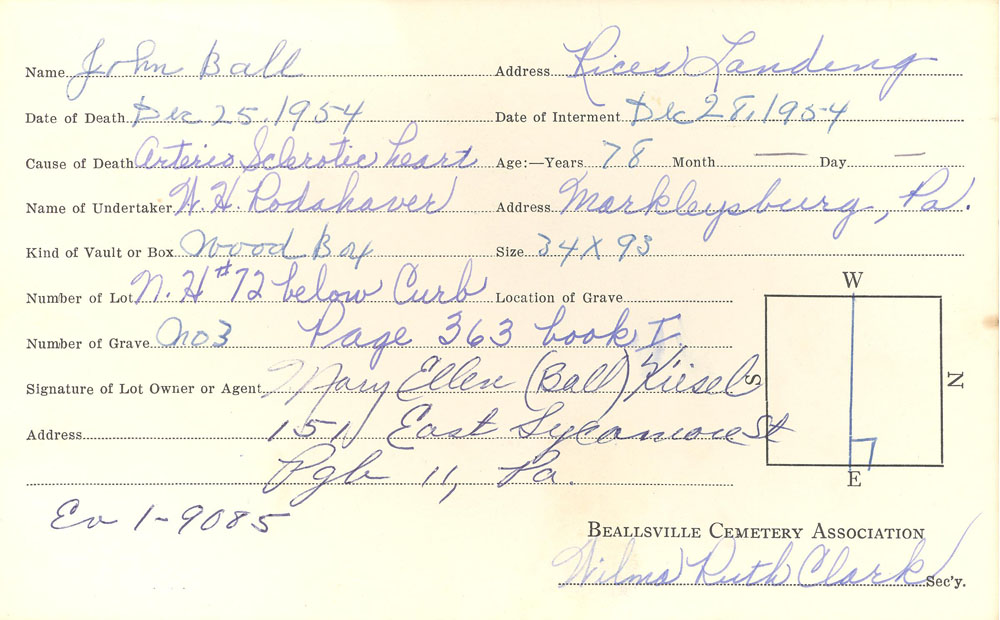 Name John Ball Address Rices Landing
Date of Death Dec 25, 1954 Date of Interment Dec 28, 1954
Cause of Death Arterio Sclerotic heart Age:—Years 78 Month — Day —
Name of Undertaker W. H. Rodahaver Address Markleysburg, Pa.
Kind of Vault or Box Wood Box Size 34 X 93
Number of Lot N. H #72 below Curb Location of Grave
Number of Grave No 3 Page 363 book I
Signature of Lot Owner or Agent Mary Ellen (Ball) Kiesel
Address 151 East Sycamore St
Pgh 11, Pa.
Ev 1-9085
W
S
N
E
BEALLSVILLE CEMETERY ASSOCIATION
Wilma Ruth Clark Sec'y.